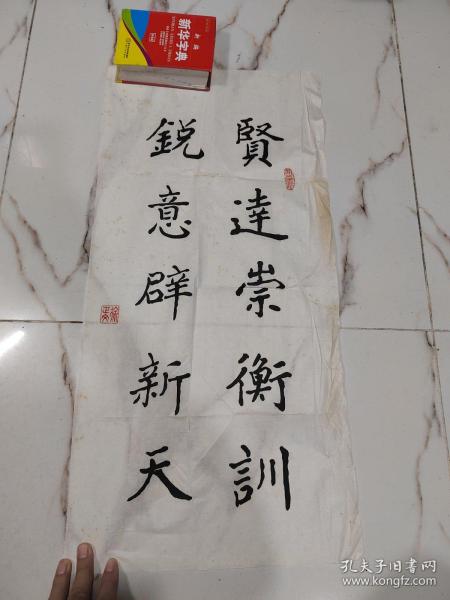 賢達崇衡訓
銳意辟新天
新编
新华字典
孔夫子旧书网
www.kongfz.com